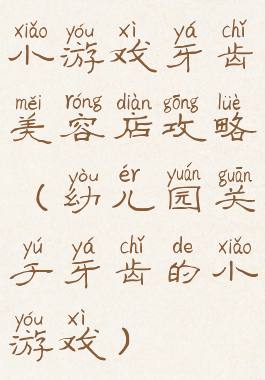 xiǎo yóu xì yá chǐ
小游戏牙齿
měi róng diàn gōng lüè
美容店攻略
yòu ér yuán guān
(幼儿园关
yú yá chǐ de xiǎo
于牙齿的小
yóu xì
游戏)